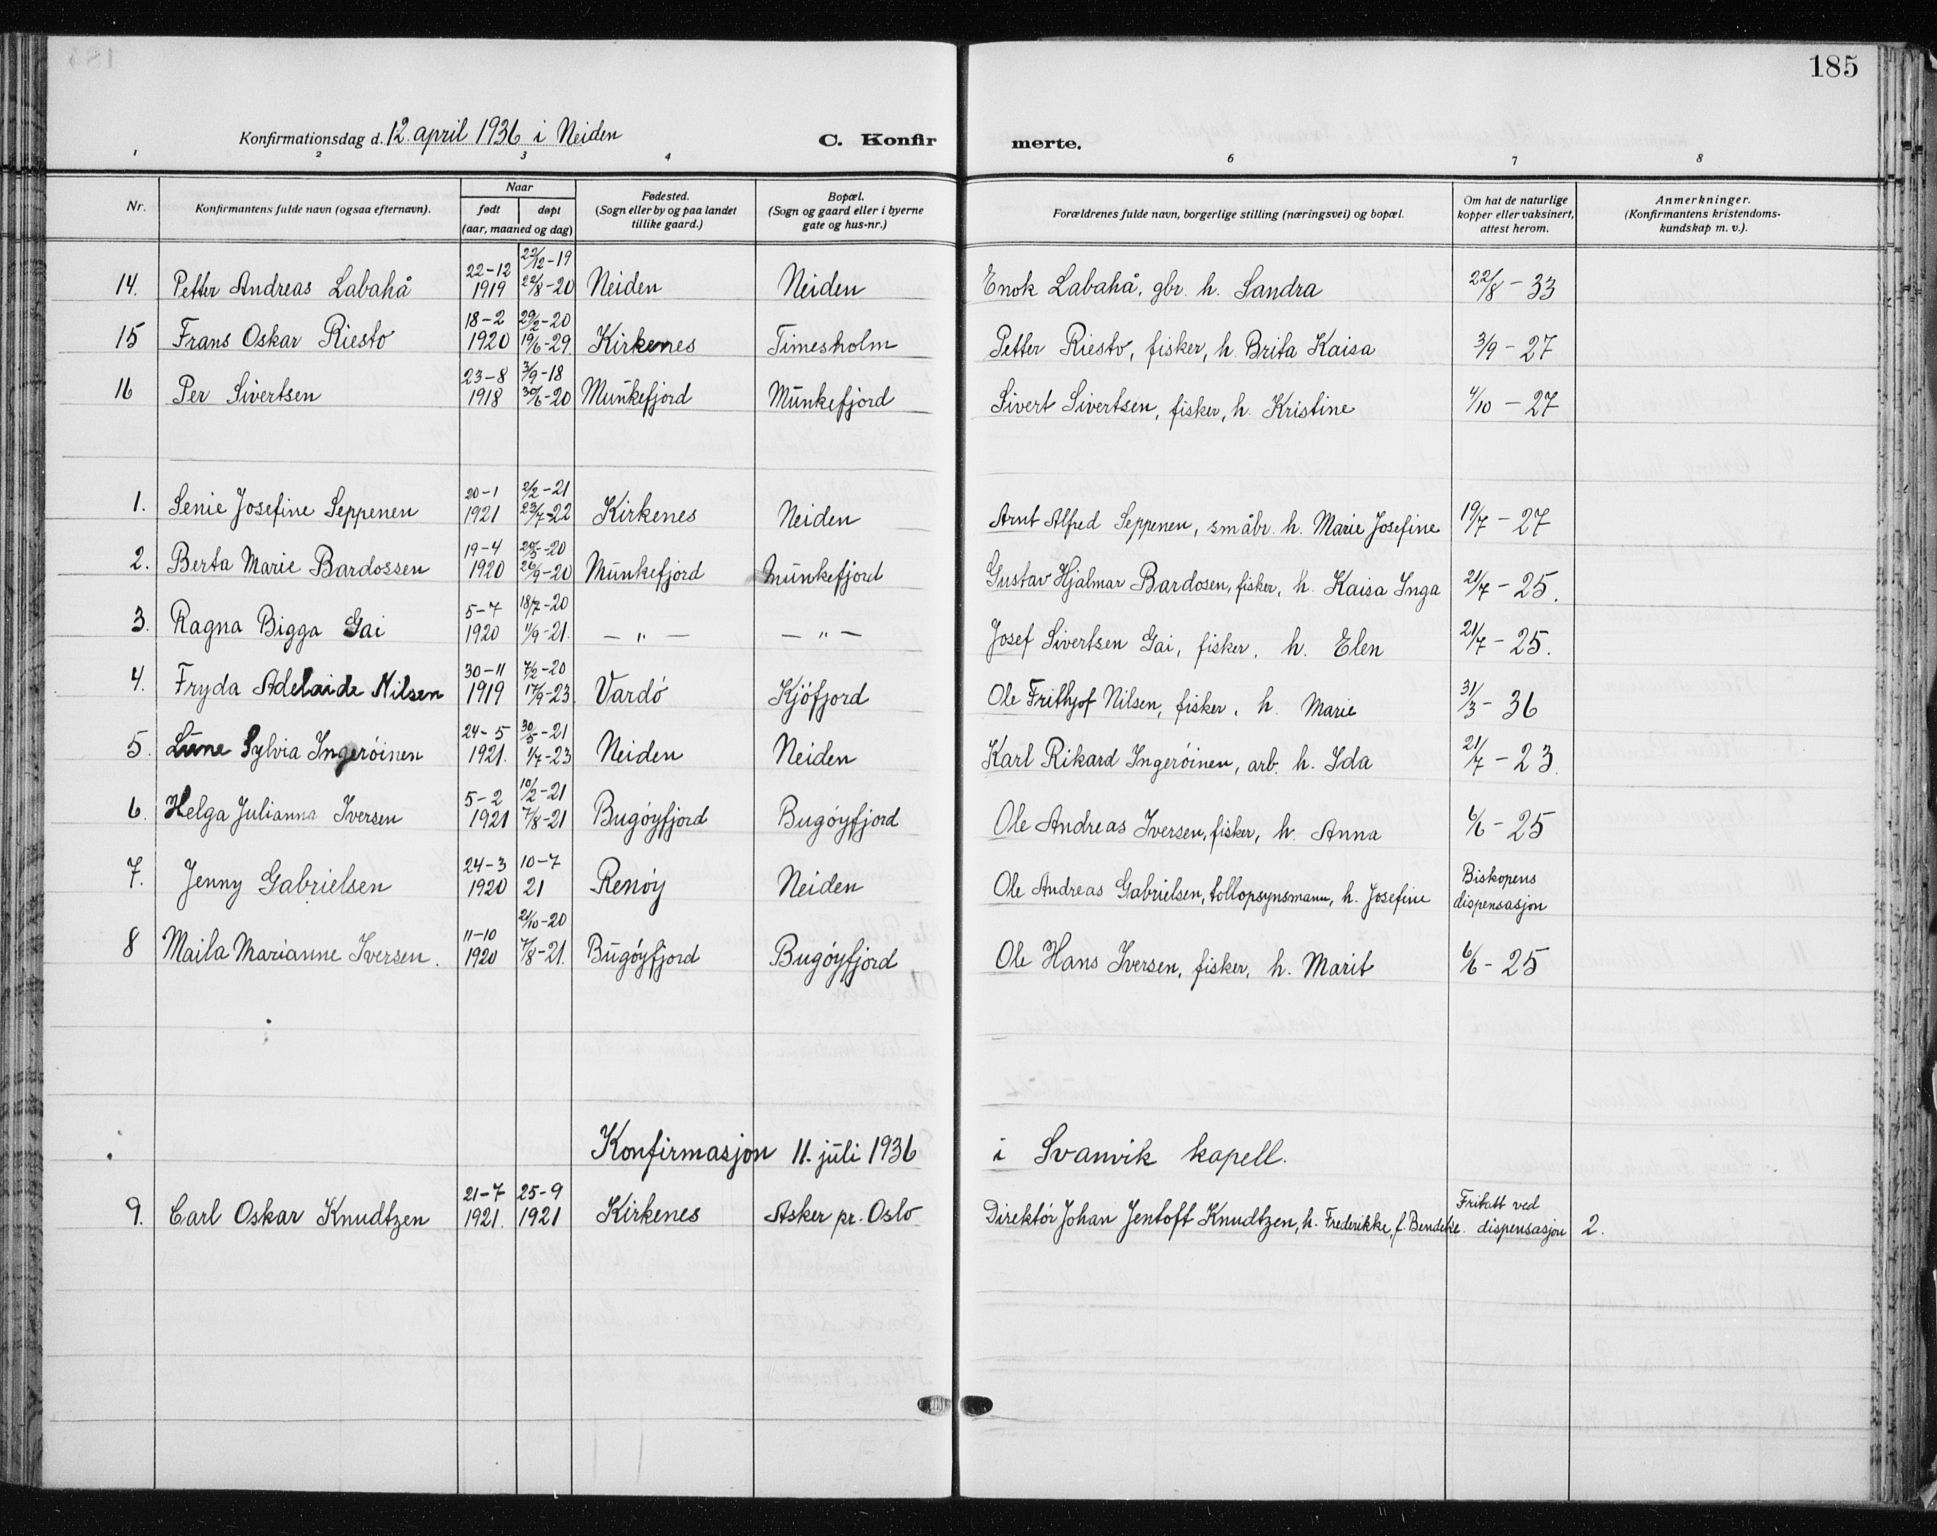 185
Konfirmationsdag d. 12. april 1936 i Neiden C. Konfirmerte.
1 2 3 4 6 7 8
Nr. Konfirmantens fulde navn (ogsaa efternavn). Naar født døpt (aar, maaned og dag) Fødested. (Sogn eller by og paa landet tillike gaard.) Bopæl. (Sogn og gaard eller i byerne gate og hus-nr.) Forældrenes fulde navn, borgerlige stilling (næringsvei) og bopæl. Om hat de naturlige kopper eller vaksinert, attest herom. Anmerkninger. (Konfirmantens kristendomskundskap m. v.).
14. Petter Andreas Labahå 22-12 1919 22/12-19 22/8-20 Neiden Neiden Enok Labahå, gbr. h. Sandra 22/8-33
15 Frans Oskar Riesto 18-2 1920 29/2-20 19/6-29 Kirkenes Timesholm Petter Riesto, fisker, h. Brita Kaisa 3/9-27
16 Per Sivertsen 23-8 1918 3/9-18 30/6-20 Munkefjord Munkefjord Sivert Sivertsen, fisker, h. Kristine 4/10-27
1. Senie Josefine Seppenen 20-1 1921 2/2-21 23/7-22 Kirkenes Neiden Arnt Alfred Seppenen, småbr. h. Marie Josefine 19/7-27
2. Berta Marie Bardossen 19-4 1920 20/5-20 26/9-20 Munkefjord Munkefjord Gustav Hjalmar Bardosen, fisker, h. Kaisa Inga 21/7-25.
3. Ragna Bigga Gai 5-7 1920 18/7-20 11/9-21. — " — — " — Josef Sivertsen Gai, fisker, h. Elen 21/7-25.
4. Fryda Adelaide Nilsen 30-11 1919 7/2-20 17/9-23 Vardö Kjöfjord Ole Frithjof Nilsen, fisker, h. Marie 31/3-36
5. Sylvia Ingeröinen 24-5 1921. 30/5-21 1/7-23 Neiden Neiden Karl Rikard Ingeröinen, arb. h. Ida 21/7-23.
6. Helga Julianna Iversen 5-2 1921 10/2-21 7/8-21 Bugöyfjord Bugöyfjord Ole Andreas Iversen, fisker, h. Anna 6/6-25
7. Jenny Gabrielsen 24-3 1920 10-7 21 Renöy Neiden Ole Andreas Gabrielsen, tollopsynsmann, h. Josefine Biskopens dispensasjon
8 Maila Marianne Iversen. 11-10 1920 21/10-20 7/8-21. Bugöyfjord Bugöyfjord Ole Hans Iversen, fisker, h. Marit 6/6-25
Konfirmasjon 11. juli 1936 i Svanvik kapell.
9. Carl Oskar Knudtzen 21-7 1921. 25-9 1921 Kirkenes Asker pr. Oslo Direktör Johan Jentoft Knudtzen, h. Frederikke, f. Bendeke. Fritatt ved dispensasjon 2.